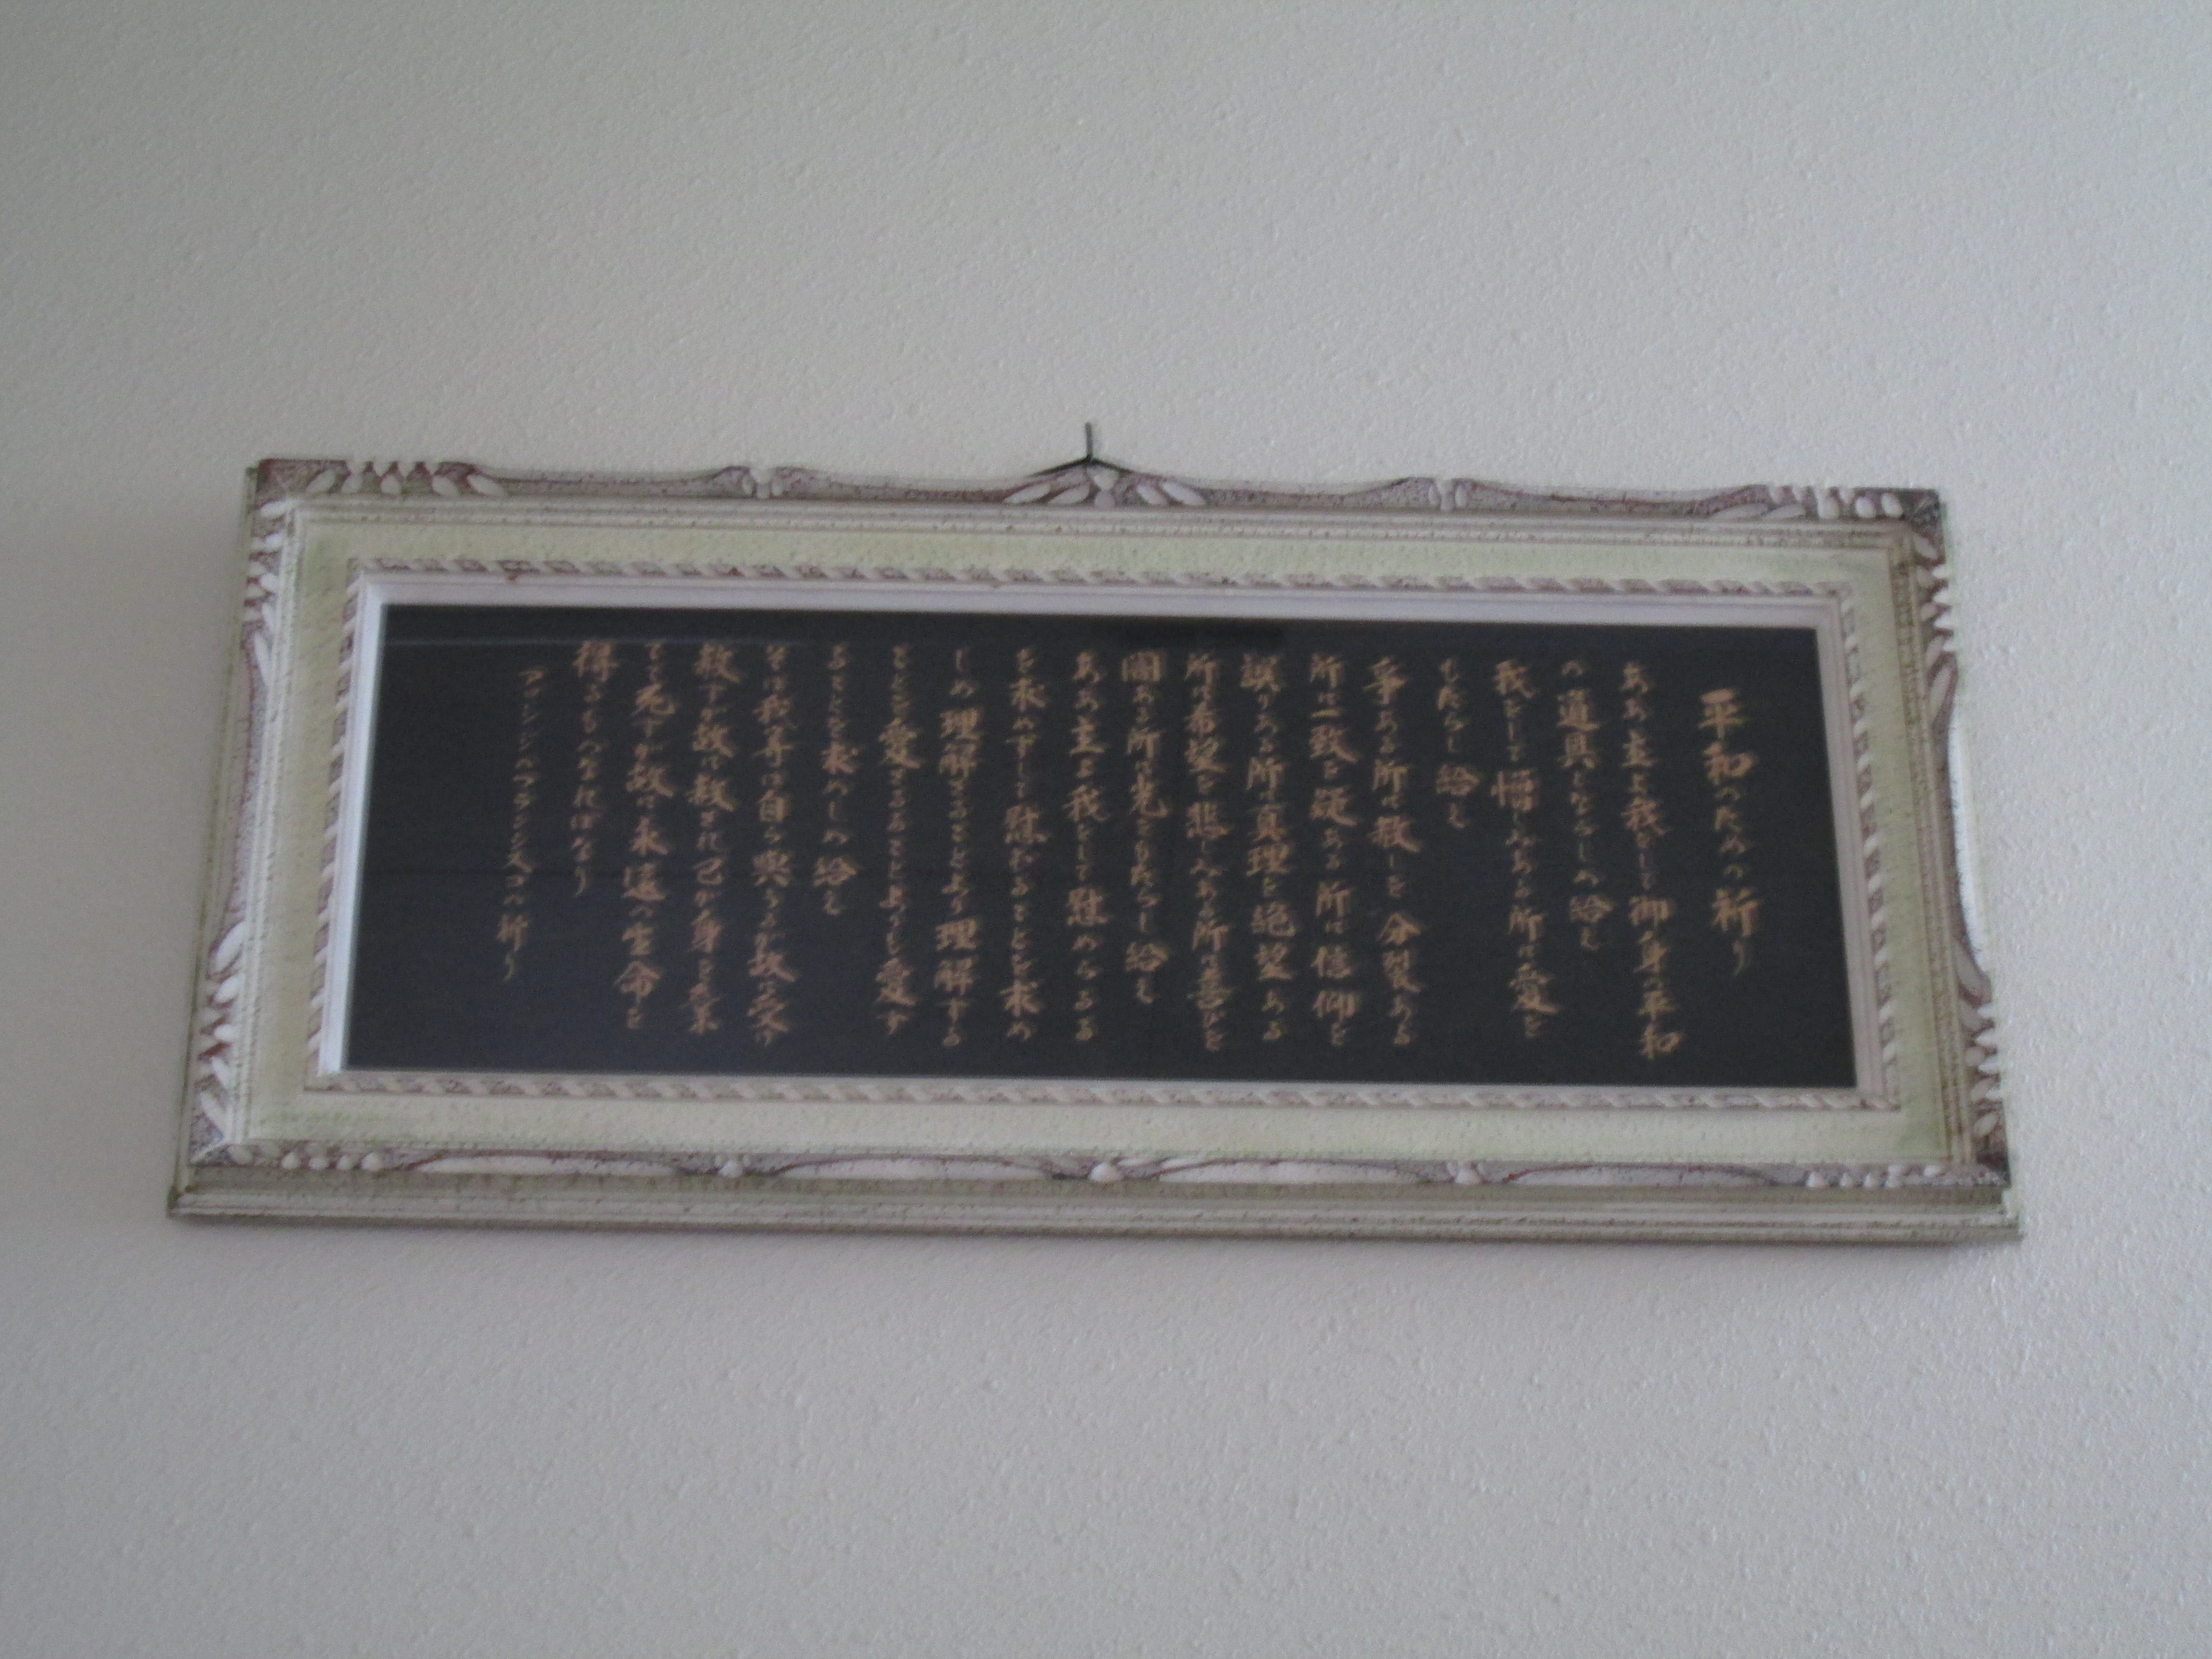 平和のための祈り
ああ主よ我をして御身の平和
の道具とならしめ給え
我をして憎しみある所に愛を
もたらし給え
争ある所に赦しを分裂ある
所に一致を疑ある所に信仰を
誤りある所に真理を絶望ある
所に希望を悲しみある所に喜びを
闇ある所に光をもたらし給え
ああ主よ我をして慰められる
を求めずして慰むることを求め
しめ理解されることより理解する
ことを愛されることよりも愛す
ることを求めしめ給え
そは我等は自ら与うるが故に受け
赦すが故に赦され己が身を棄
てて死すが故に永遠の生命を
得るものなればなり
アッシジのフランシスコの祈り